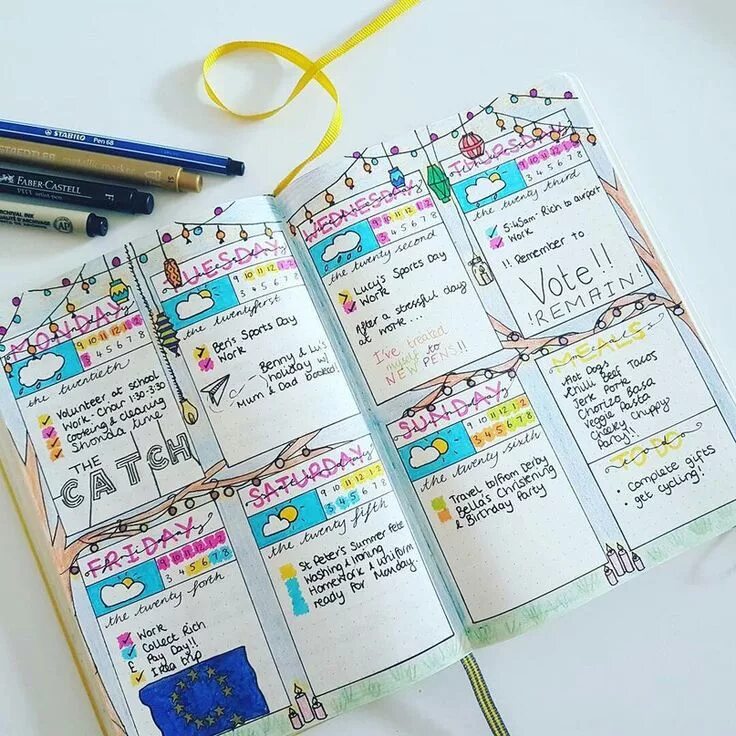 STABILO Pen 68
STAEDTLER metallic marker
FABER-CASTELL
PITT artist pen F
ARCHIVAL INK
AP
MONDAY
9 10 11 12 1 2
3 4 5 6 7 8
the twentieth
Volunteer at school
Work: Chair 1:30-3:30
Cooking & Cleaning
Shonda time
THE
CATCH
TUESDAY
9 10 11 12 1 2
3 4 5 6 7 8
the twentyfirst
Ben's Sports Day
Work
Benny & Lu's
holiday w/
Mum & Dad booked!
WEDNESDAY
9 10 11 12 1 2
3 4 5 6 7 8
the twenty second
Lucy's Sports Day
Work
After a stressful day
at work...
I've treated
myself to
NEW PENS!!
THURSDAY
9 10 11 12 1 2
3 4 5 6 7 8
the twenty third
5:45am Rich to airport
Work
!! Remember to
Vote!!
!REMAIN!
FRIDAY
9 10 11 12 1 2
3 4 5 6 7 8
the twenty forth
Work
Collect Rich
£ Pay Day!!
Ikea trip
SATURDAY
9 10 11 12 1 2
3 4 5 6 7 8
the twenty fifth
St Peter's Summer Fete
Washing & Ironing
Homework & Uniform
ready for Monday.
SUNDAY
9 10 11 12 1 2
3 4 5 6 7 8
the twenty sixth
Travel to/from Derby
Bella's Christening
& Birthday Party
MEALS
Hot Dog
Chilli Beef Tacos
Jerk Pork
Chorizo Basa
Veggie Pasta
Cheeky Chippy
Party!!
TO DO
• Complete gifts
• get cycling!!